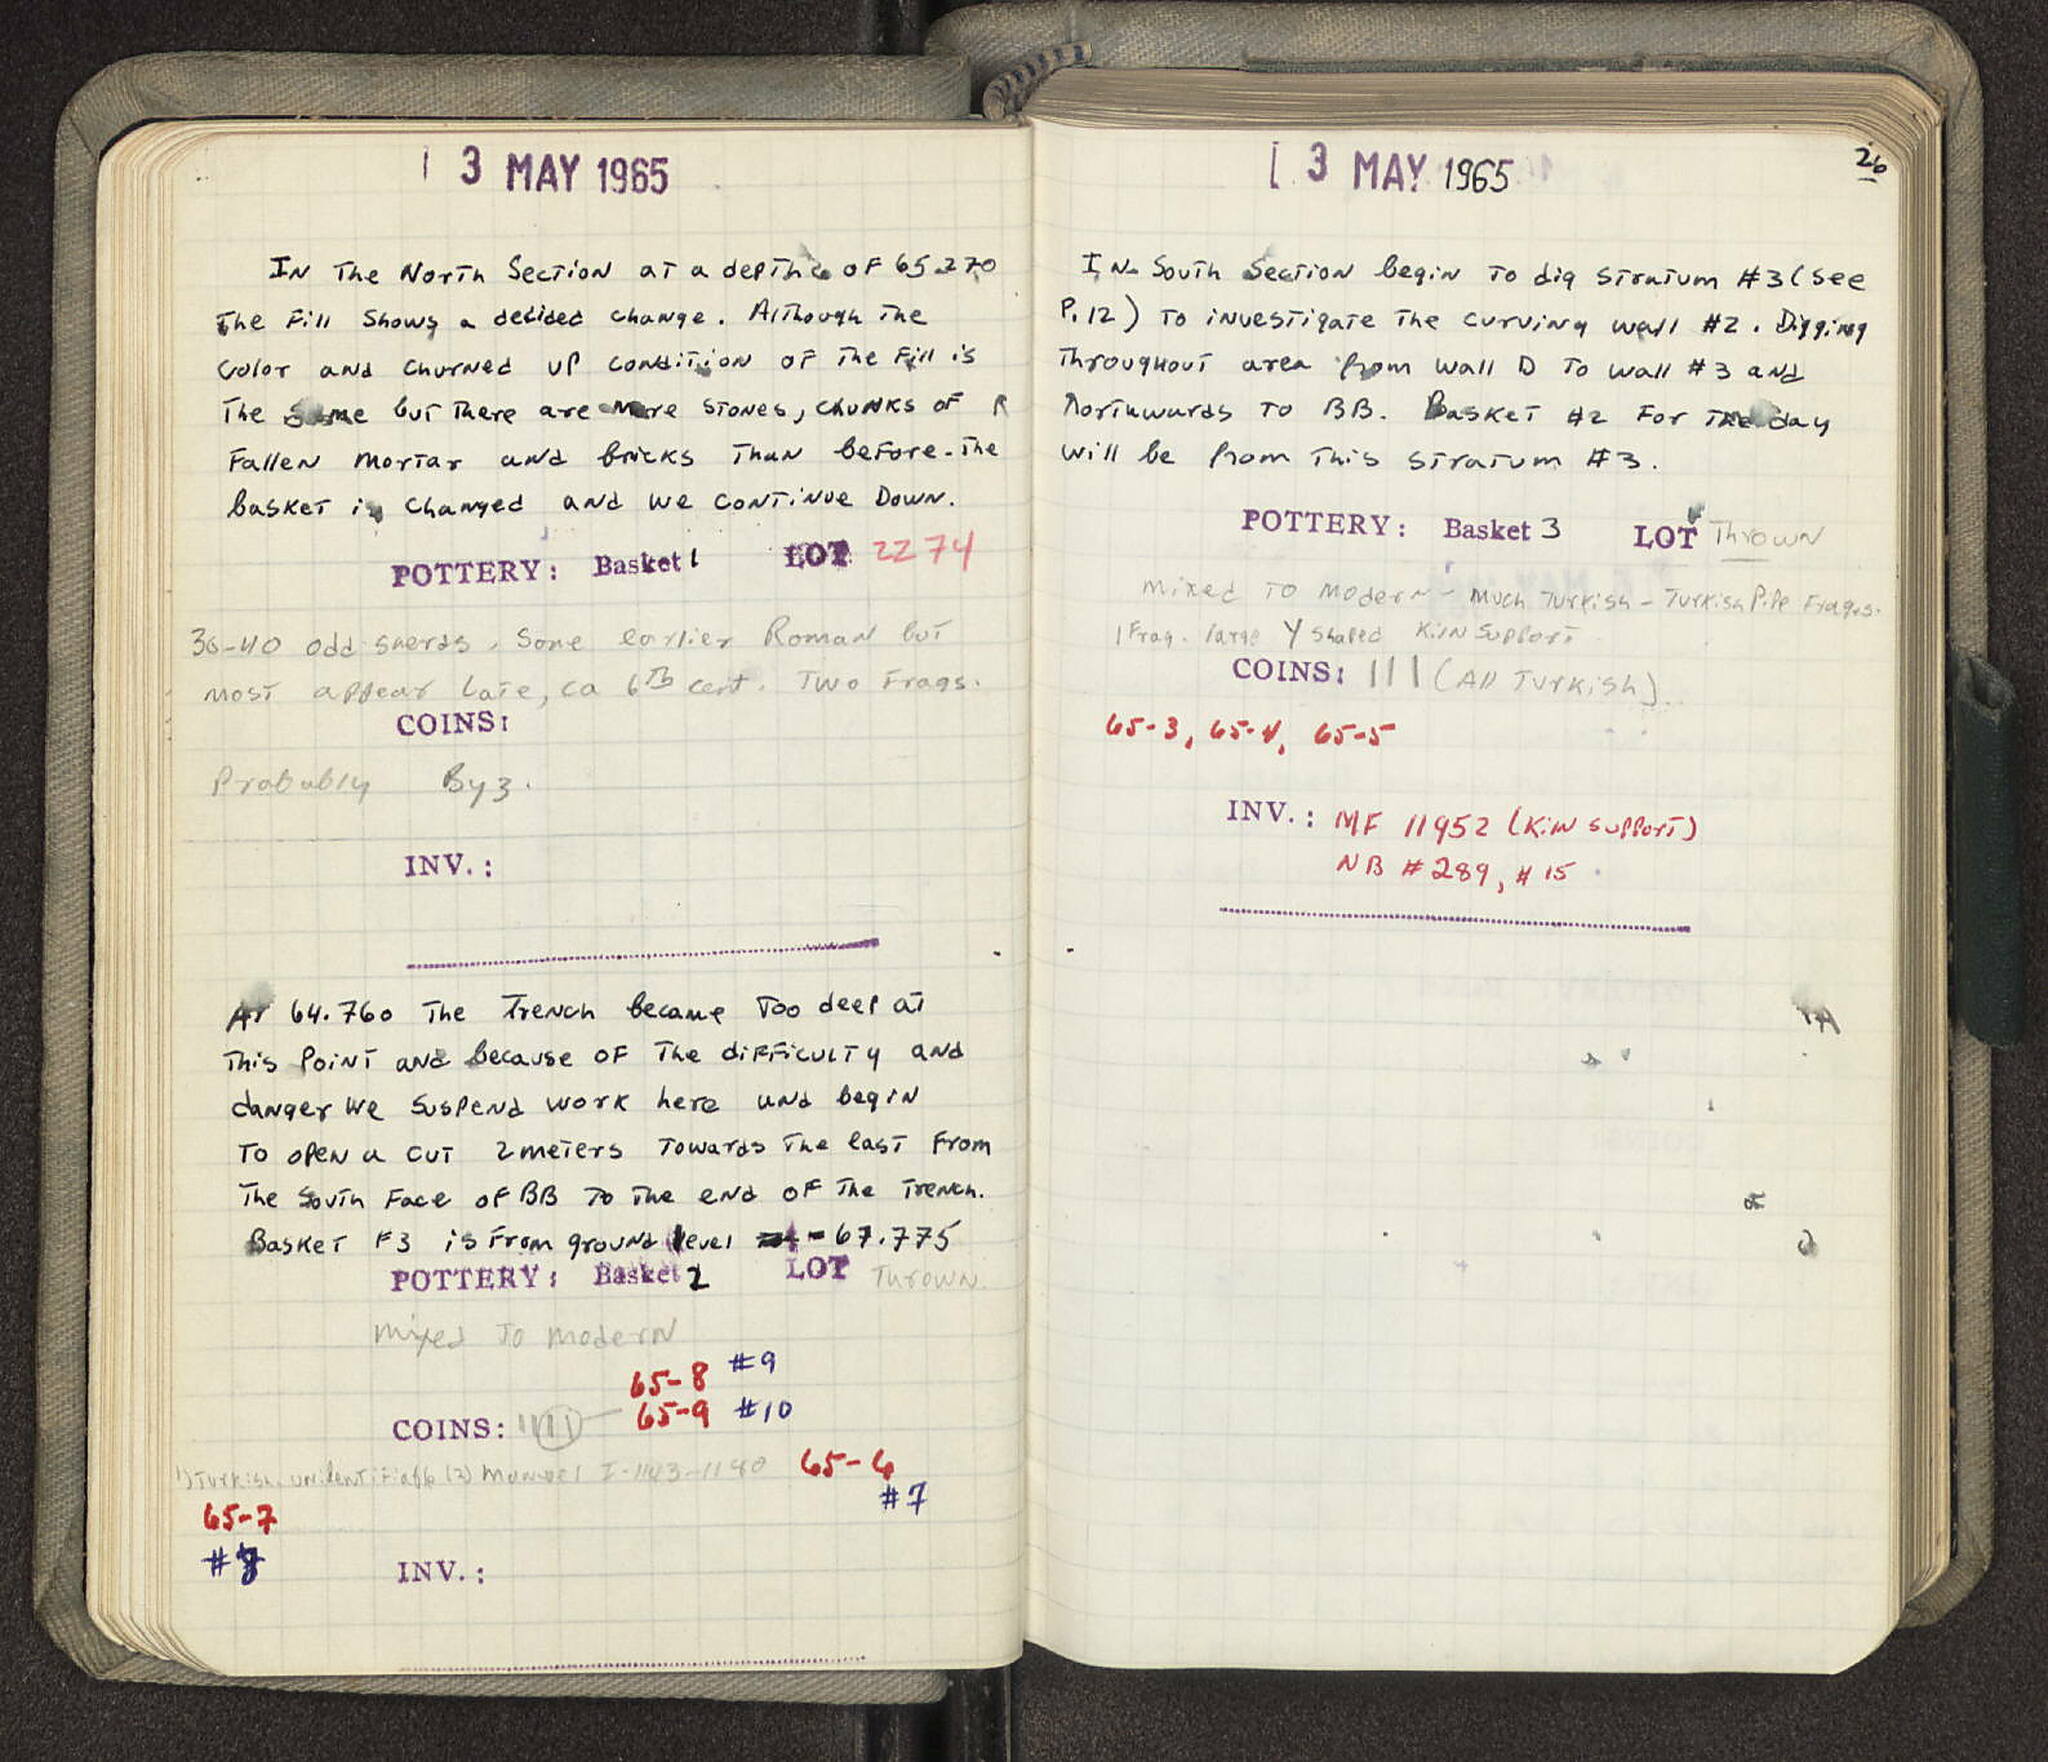 13 MAY 1965
In The North Section at a depth of 65.270
The Fill Shows a decided change. Although the
Color and Churned up condition of the Fill is
The same but there are more stones, chunks of
Fallen mortar and bricks than before. The
basket is changed and we continue Down.
POTTERY: Basket 1 LOT 2274
30-40 odd sherds. Some earlier Roman but
most appear late, ca 6th cent. Two Frags.
COINS:
Probably Byz.
INV.:
At 64.760 The Trench became Too deep at
This Point and because of the difficulty and
danger we suspend work here and begin
To open a cut 2 meters Towards The East From
The South Face of BB To The end of the Trench.
Basket #3 is From ground level - 67.775
POTTERY: Basket 2 LOT Thrown.
Mixed To modern
65-8 #9
65-9 #10
COINS: IIII
1) Turkish unidentifiable (2) Manuel I-1143-1180 65-6
#7
65-7
#8
INV.:
13 MAY 1965
26
In South Section begin To dig stratum #3 (See
P. 12) To investigate the curving wall #2. Digging
Throughout area from wall D To wall #3 and
Northwards To BB. Basket #2 For The day
will be from This stratum #3.
POTTERY: Basket 3 LOT Thrown
Mixed To Modern - Much Turkish - Turkish Pipe Frags.
1 Frag. large Y shaped Kiln Support
COINS: III (All Turkish).
65-3, 65-4, 65-5
INV.: MF 11952 (Kiln support)
NB #289, #15